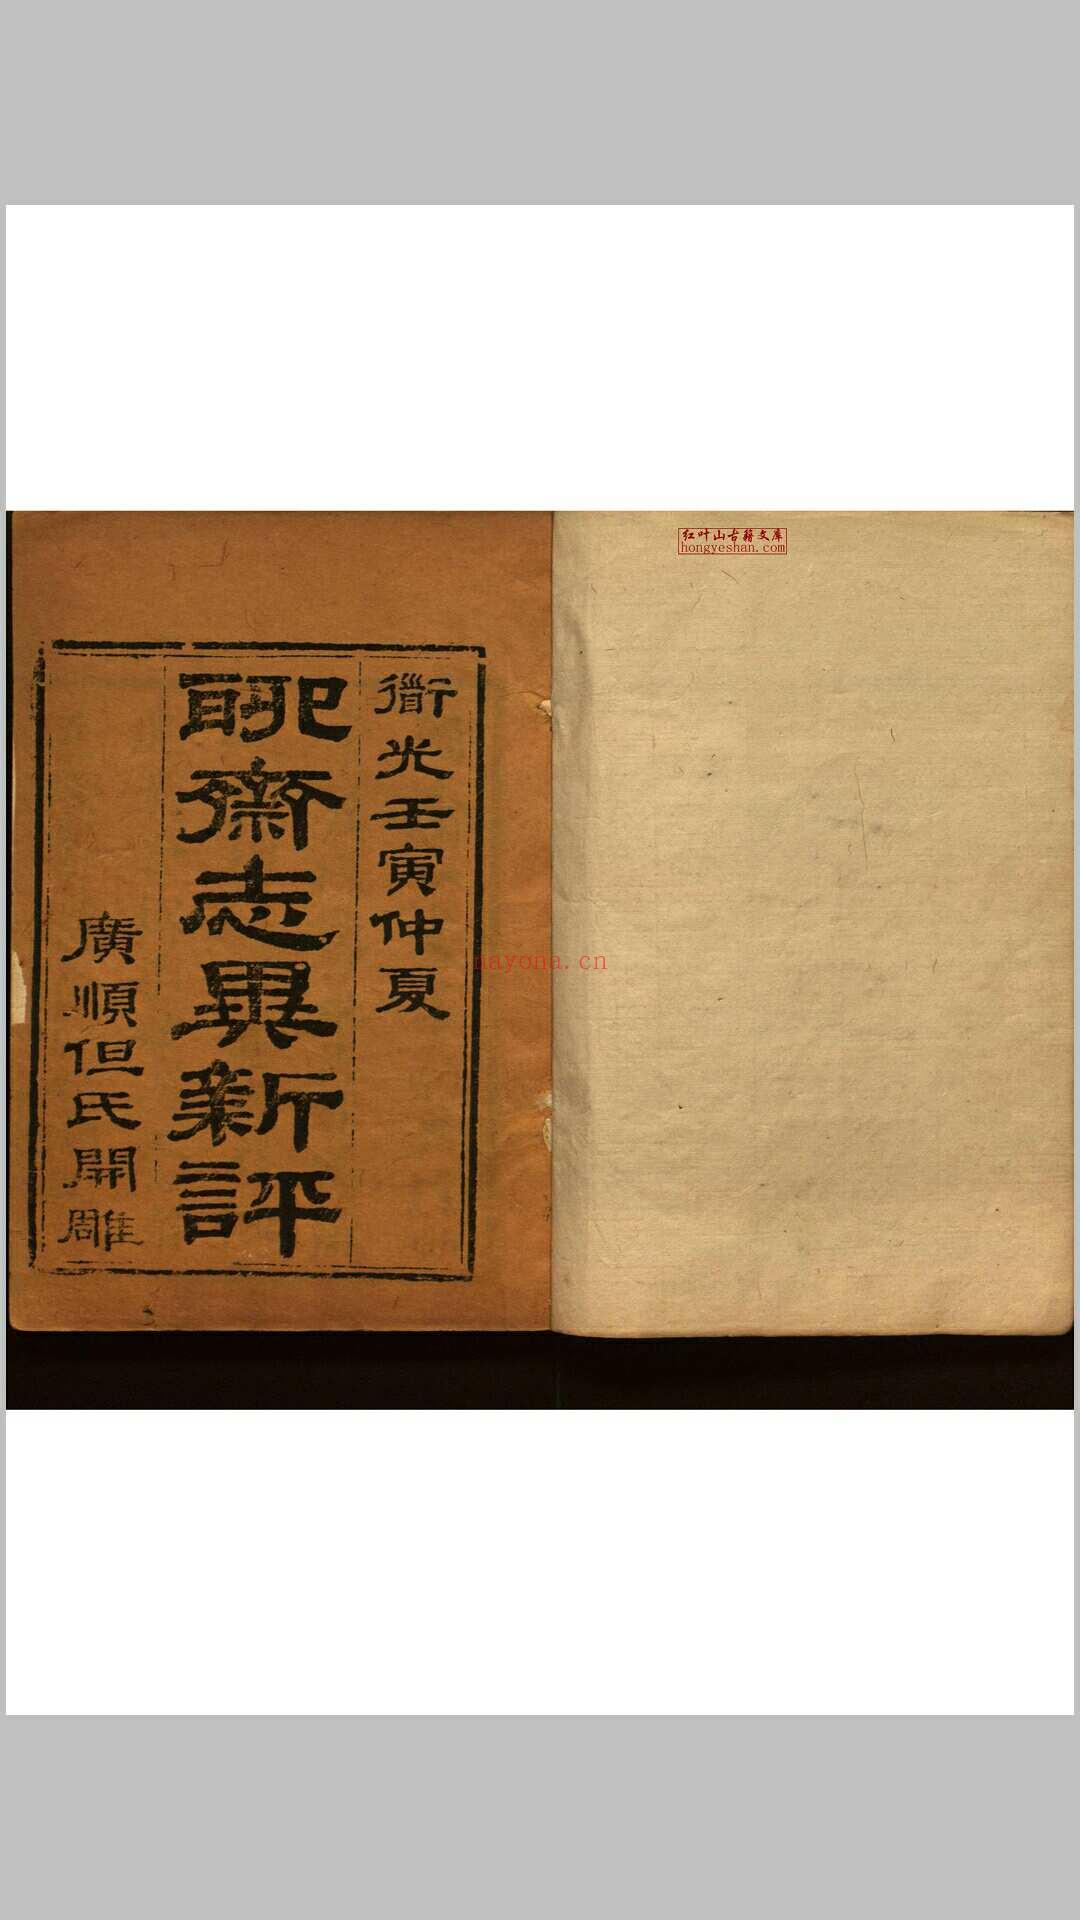 红叶山古籍文库
hongyeshan.com
衟光壬寅仲夏
聊齋志異新評
廣順但氏開雕
nayona.cn